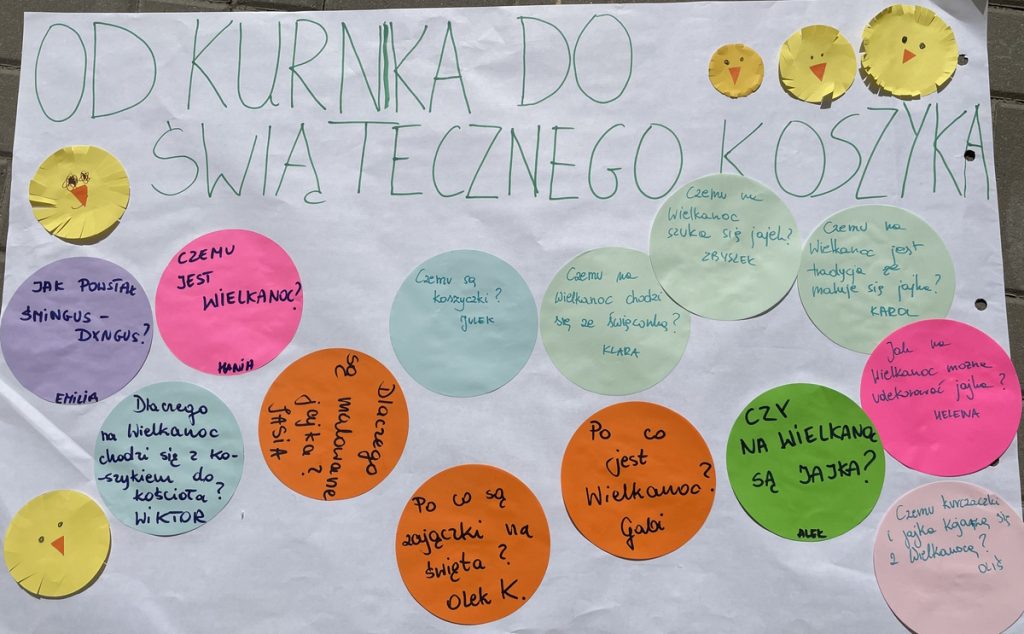 OD KURNIKA DO
ŚWIĄTECZNEGO KOSZYKA
JAK POWSTAŁ
ŚMINGUS -
DYNGUS?
EMILIA
CZEMU
JEST
WIELKANOC?
HANIA
Dlaczego
na Wielkanoc
chodzi się z ko-
szykiem do
kościoła?
WIKTOR
Dlaczego
są malowane
jajka?
JASIA
Czemu są
koszyczki?
JULEK
Czemu na
Wielkanoc chodzi
się ze święconką?
KLARA
Czemu na
Wielkanoc
szuka się jajek?
ZBYSZEK
Czemu na
Wielkanoc jest
tradycja że
maluje się jajka?
KAROL
Jak na
Wielkanoc można
udekorować jajka?
HELENA
Po co są
zajączki na
święta?
Olek K.
Po co
jest
Wielkanoc?
Gabi
CZY
NA WIELKANOC
SĄ JAJKA?
ALEK
Czemu kurczaczki
i jajka kojarzą się
z Wielkanocą?
OLIŚ